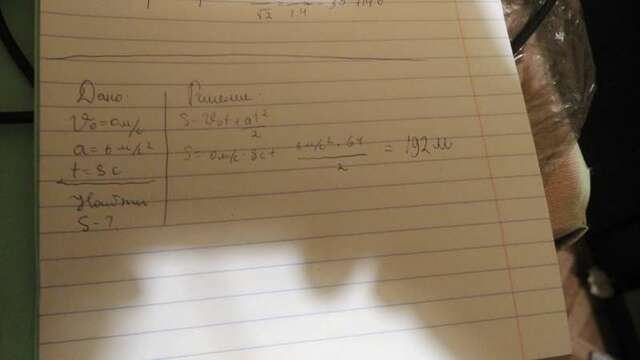 √2 1.4
Дано:
V₀ = 0 м/с
a = 6 м/с²
t = 8 с
Найти
S - ?
Решение
S = V₀t + at²/2
S = 0 м/с · 8 с + 6 м/с² · 64 / 2 = 192 м